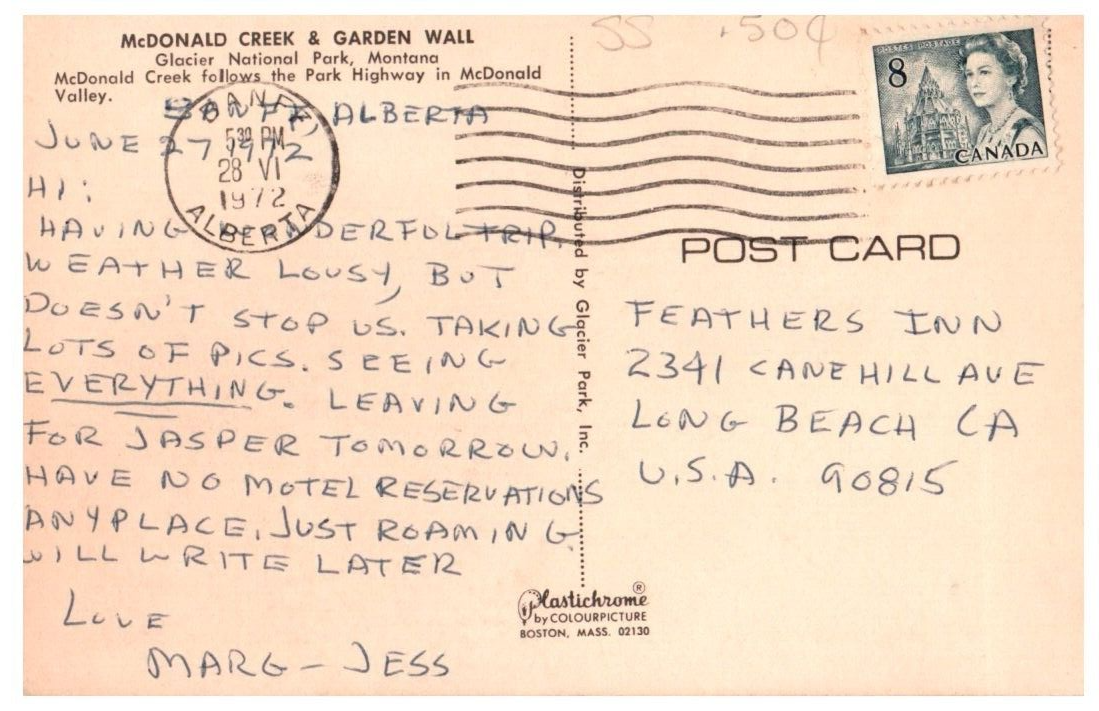 McDONALD CREEK & GARDEN WALL
Glacier National Park, Montana
McDonald Creek follows the Park Highway in McDonald
Valley.
SS .50¢
8
POSTES POSTAGE
CANADA
BANFF
5 30 PM
28 VI
1972
ALBERTA
BANFF, ALBERTA
JUNE 27 1972
HI:
HAVING WONDERFUL TRIP.
WEATHER LOUSY, BUT
DOESN'T STOP US. TAKING
LOTS OF PICS. SEEING
EVERYTHING. LEAVING
FOR JASPER TOMORROW.
HAVE NO MOTEL RESERVATIONS
ANYPLACE, JUST ROAMING.
WILL WRITE LATER
LOVE
MARG - JESS
Distributed by Glacier Park, Inc.
POST CARD
FEATHERS INN
2341 CANEHILL AVE
LONG BEACH CA
U.S.A. 90815
Plastichrome ®
by COLOURPICTURE
BOSTON, MASS. 02130